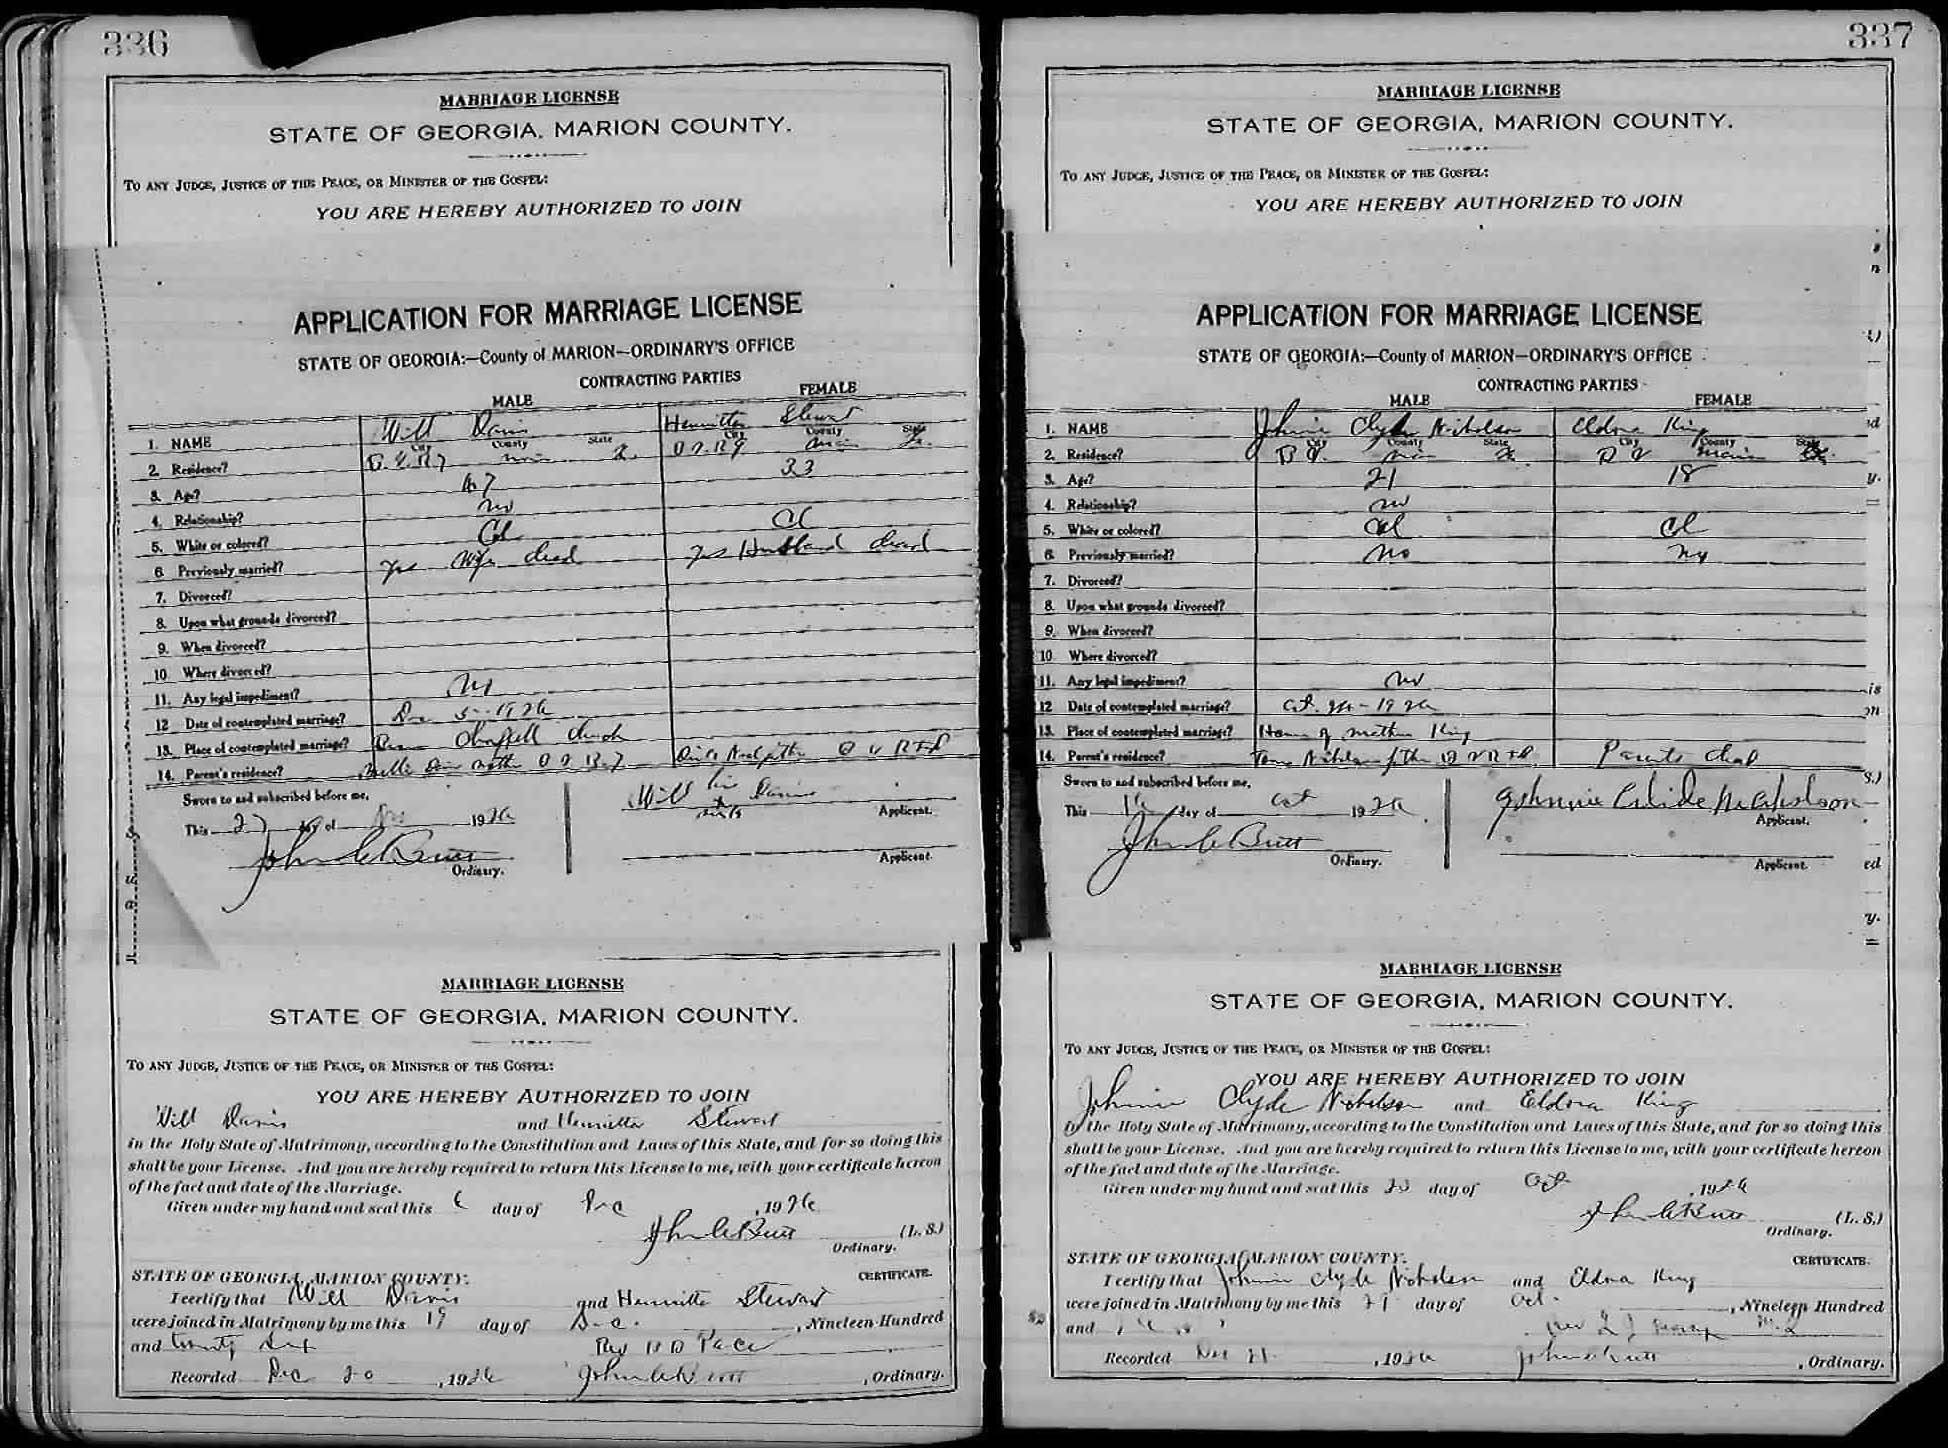 336
MARRIAGE LICENSE
STATE OF GEORGIA, MARION COUNTY.
TO ANY JUDGE, JUSTICE OF THE PEACE, OR MINISTER OF THE GOSPEL:
YOU ARE HEREBY AUTHORIZED TO JOIN
APPLICATION FOR MARRIAGE LICENSE
STATE OF GEORGIA:—County of MARION—ORDINARY'S OFFICE
CONTRACTING PARTIES
MALE FEMALE
1. NAME Will Davis Henrietta Stewart
City County State City County State
2. Residence?
3. Age? 47 33
4. Relationship? no
5. White or colored? Col Cl
6. Previously married? yes Wife dead yes Husband dead
7. Divorced?
8. Upon what grounds divorced?
9. When divorced?
10. Where divorced?
11. Any legal impediment? No
12 Date of contemplated marriage? Dec 5-1926
13. Place of contemplated marriage? Chappell Church
14. Parent's residence? Davis mother
Sworn to and subscribed before me,
This 27 day of Nov 1926
Will his Davis
X
Applicant.
John C Butt
Ordinary.
Applicant.
MARRIAGE LICENSE
STATE OF GEORGIA, MARION COUNTY.
TO ANY JUDGE, JUSTICE OF THE PEACE, OR MINISTER OF THE GOSPEL:
YOU ARE HEREBY AUTHORIZED TO JOIN
Will Davis and Henrietta Stewart
in the Holy State of Matrimony, according to the Constitution and Laws of this State, and for so doing this
shall be your License. And you are hereby required to return this License to me, with your certificate hereon
of the fact and date of the Marriage.
Given under my hand and seal this 6 day of Dec , 1926
John C Butt (L. S.)
Ordinary.
STATE OF GEORGIA, MARION COUNTY. CERTIFICATE.
I certify that Will Davis and Henrietta Stewart
were joined in Matrimony by me this 19 day of Dec. , Nineteen Hundred
and twenty six Rev B D Pace
Recorded Dec 20 , 1926 John C Butt , Ordinary.
337
MARRIAGE LICENSE
STATE OF GEORGIA, MARION COUNTY.
TO ANY JUDGE, JUSTICE OF THE PEACE, OR MINISTER OF THE GOSPEL:
YOU ARE HEREBY AUTHORIZED TO JOIN
APPLICATION FOR MARRIAGE LICENSE
STATE OF GEORGIA:—County of MARION—ORDINARY'S OFFICE
CONTRACTING PARTIES
MALE FEMALE
1. NAME Johnie Clyde Nicholson Eldora King
City County State City County State
2. Residence? B V. B V Marion
3. Age? 21 18
4. Relationship? no
5. White or colored? Col Cl
6. Previously married? No no
7. Divorced?
8. Upon what grounds divorced?
9. When divorced?
10 Where divorced?
11. Any legal impediment? no
12 Date of contemplated marriage? Oct. 24-1926
13. Place of contemplated marriage? Home of mother King
14. Parent's residence? Tom Nicholson father B V R Parents dead
Sworn to and subscribed before me,
This 16 day of Oct 1926
Johnnie Clide Nicholson
Applicant.
John C Butt
Ordinary.
Applicant.
MARRIAGE LICENSE
STATE OF GEORGIA, MARION COUNTY.
TO ANY JUDGE, JUSTICE OF THE PEACE, OR MINISTER OF THE GOSPEL:
YOU ARE HEREBY AUTHORIZED TO JOIN
Johnnie Clyde Nicholson and Eldora King
in the Holy State of Matrimony, according to the Constitution and Laws of this State, and for so doing this
shall be your License. And you are hereby required to return this License to me, with your certificate hereon
of the fact and date of the Marriage.
Given under my hand and seal this 23 day of Oct , 1926
John C Butt (L. S.)
Ordinary.
STATE OF GEORGIA, MARION COUNTY. CERTIFICATE.
I certify that Johnnie Clyde Nicholson and Eldora King
were joined in Matrimony by me this day of Oct. , Nineteen Hundred
and Rev
Recorded 21 , 1926 John C Butt , Ordinary.